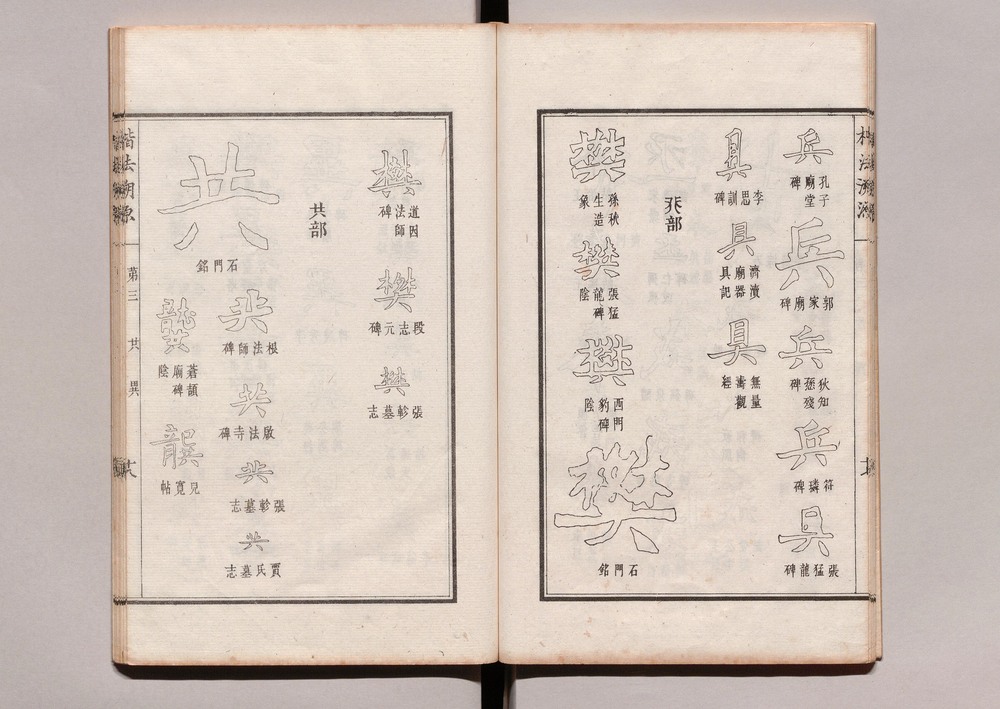 兵
孔子廟堂碑
兵
郭家廟碑
兵
狄知愻碑
兵
符璘碑
具
張猛龍碑
具
李思訓碑
具
濟瀆廟器具記
具
無量壽觀經
𠬜部
樊
孫秋生造象
樊
張猛龍碑陰
樊
西門豹碑陰
樊
石門銘
樊
道因法師碑
樊
段志元碑
樊
張軫墓志
共部
共
石門銘
共
根法師碑
共
啟法寺碑
共
張軫墓志
共
賈氏墓志
龔
蒼頡廟碑陰
龔
兒寬帖
楷法溯源 第三 共 異